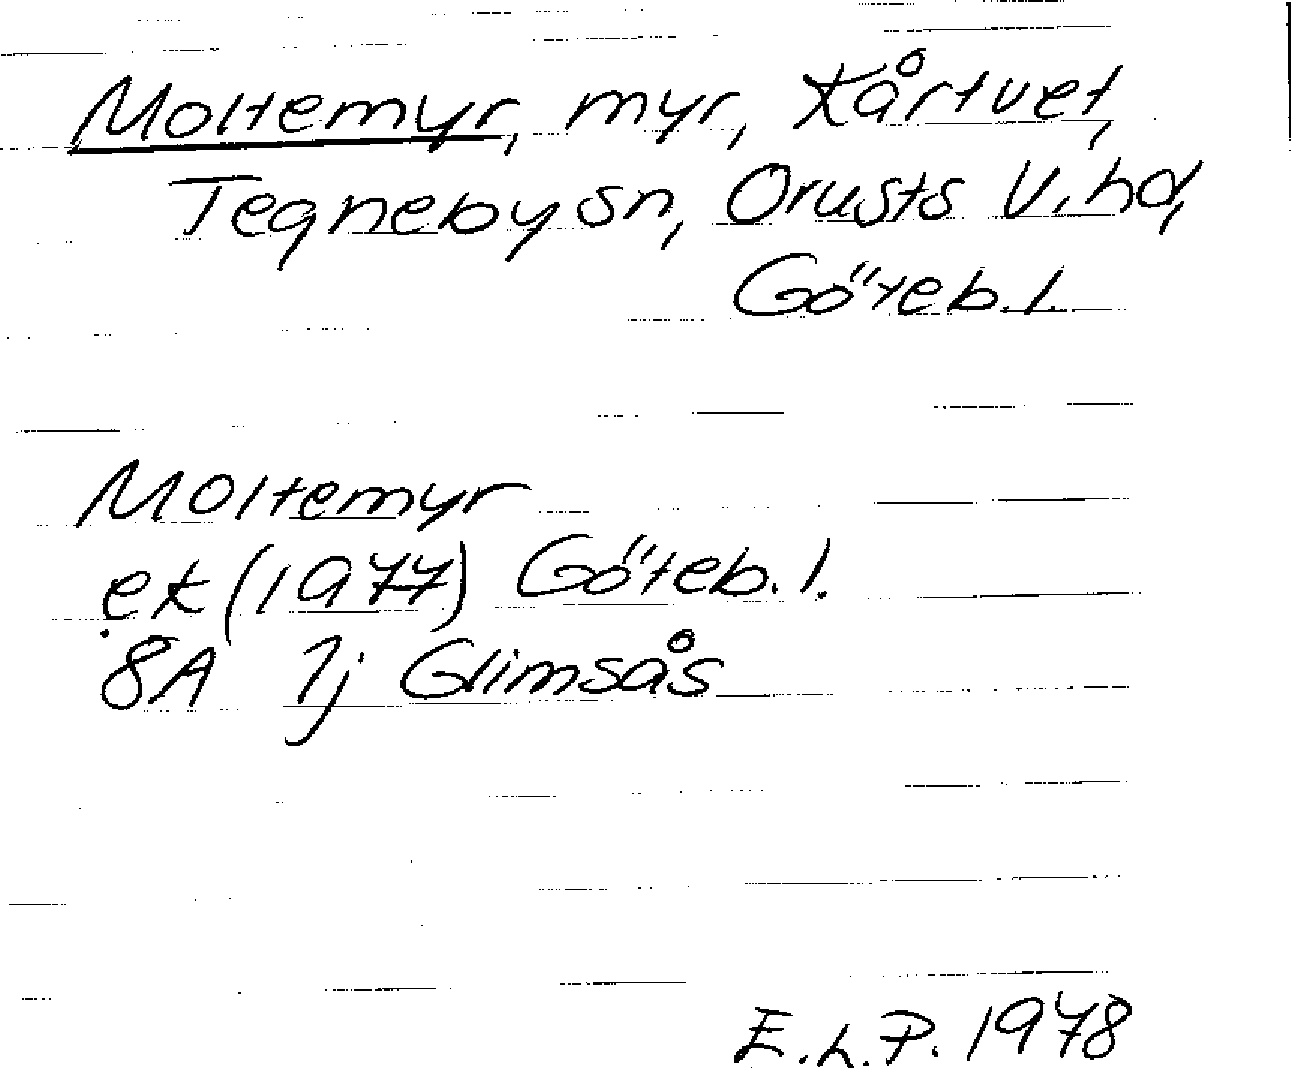 Moltemyr, myr, Kårtvet,
Tegneby sn, Orusts V. hd,
Göteb. l.
Moltemyr
ek (1977) Göteb. l.
8A 1j Glimsås
E.L.P. 1978